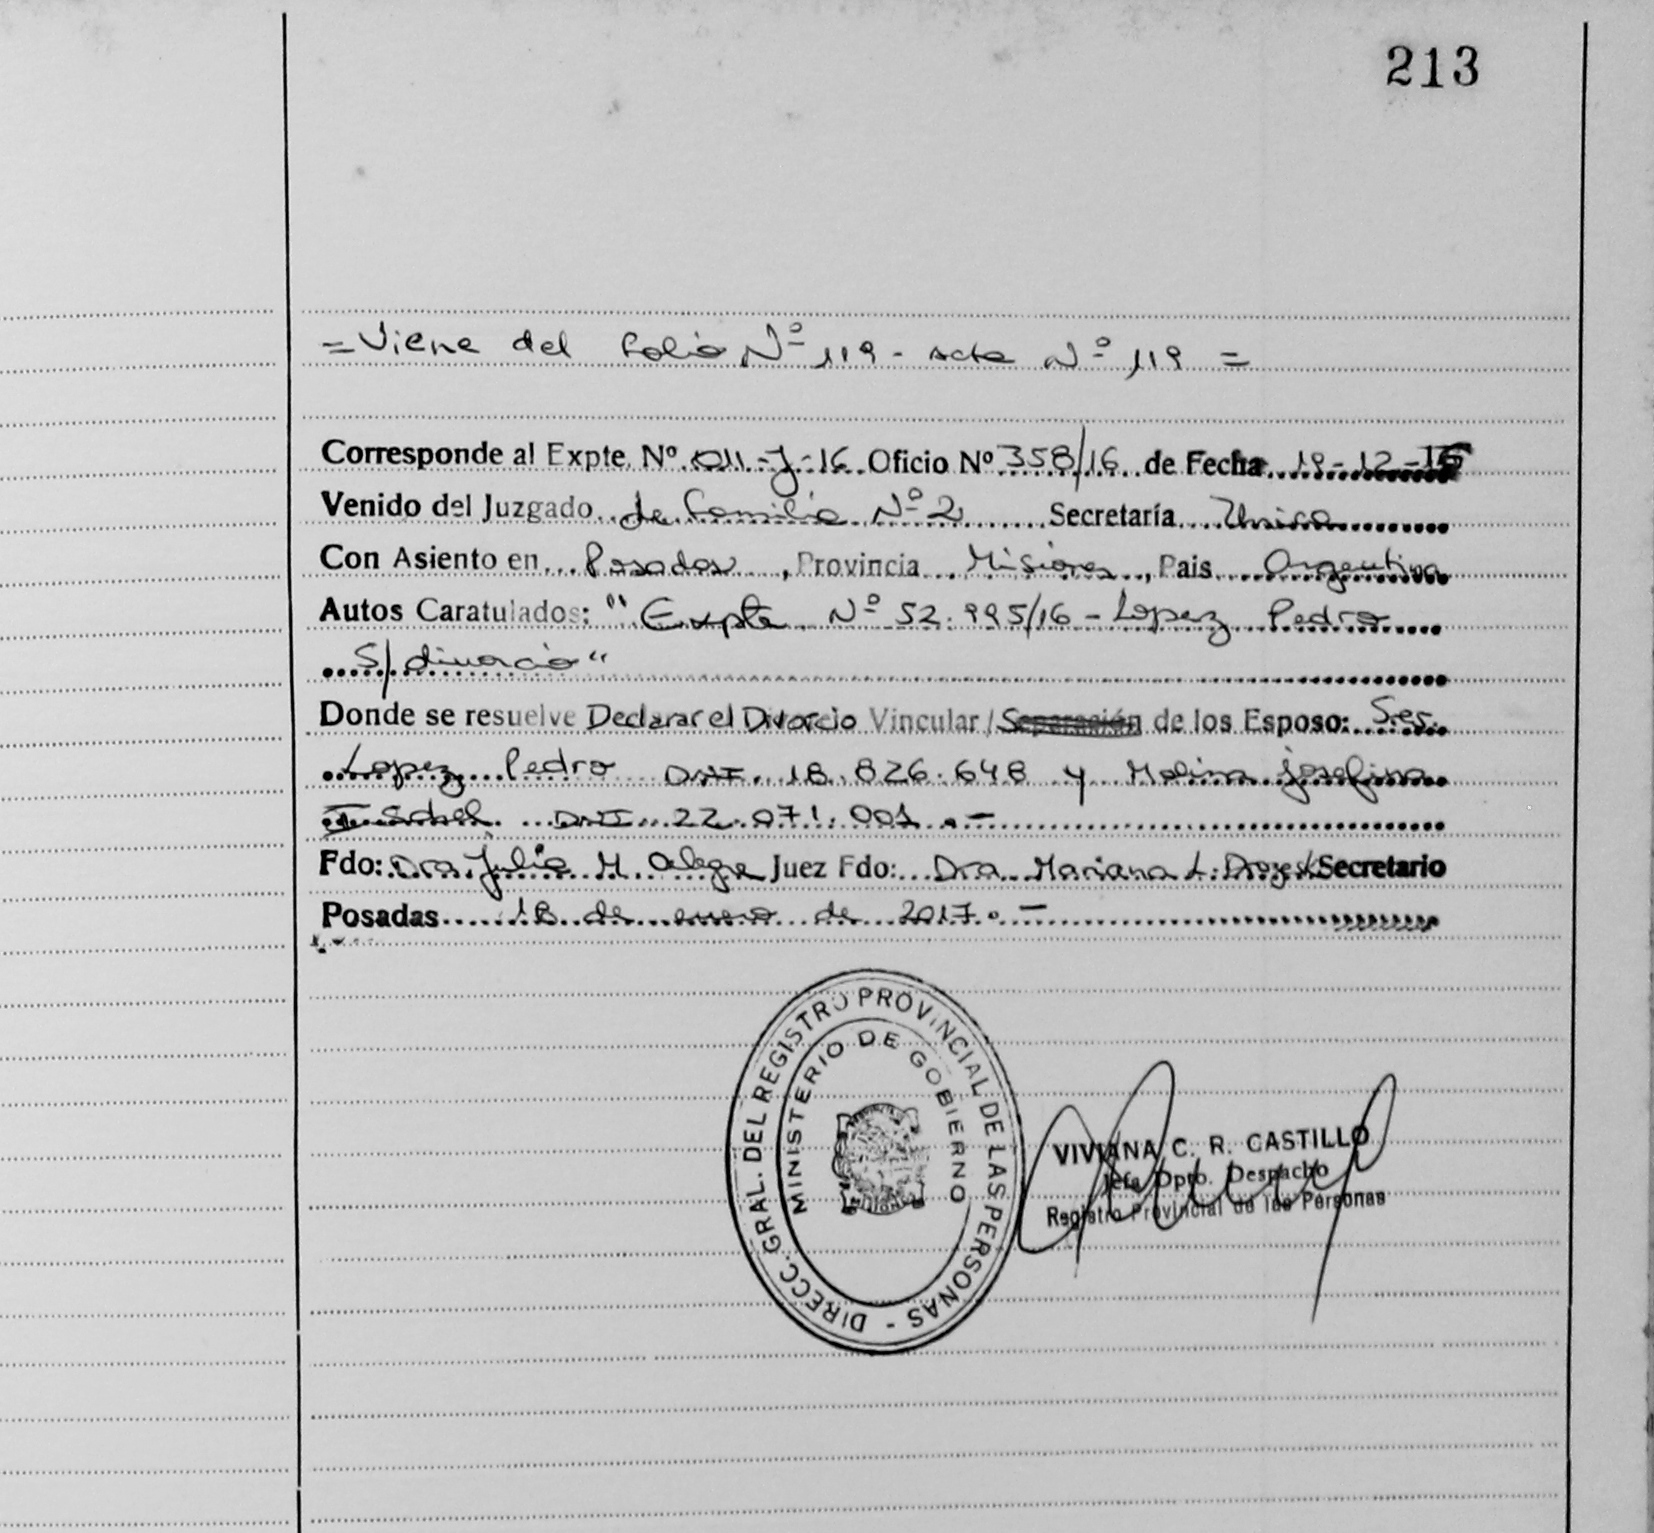 213
= Viene del folio Nº 119 - Acta Nº 119 =
Corresponde al Expte. Nº 011-J-16 Oficio Nº 358/16 de Fecha 19-12-16
Venido del Juzgado de Familia Nº 2 Secretaría Unica
Con Asiento en Posadas, Provincia Misiones, Pais Argentina
Autos Caratulados: "Expte Nº 52.995/16 - Lopez Pedro
S/ divorcio"
Donde se resuelve Declarar el Divorcio Vincular / Separación de los Esposo: Sres.
Lopez Pedro DNI. 18.826.648 y Molina Josefina
Isabel DNI 22.071.001.-
Fdo: Dra Julia M. Alegre Juez Fdo: Dra. Mariana L. Secretario
Posadas 18 de enero de 2017.-
DIRECC. GRAL. DEL REGISTRO PROVINCIAL DE LAS PERSONAS -
MINISTERIO DE GOBIERNO
MISIONES
VIVIANA C. R. CASTILLO
Jefa Dpto. Despacho
Registro Provincial de las Personas